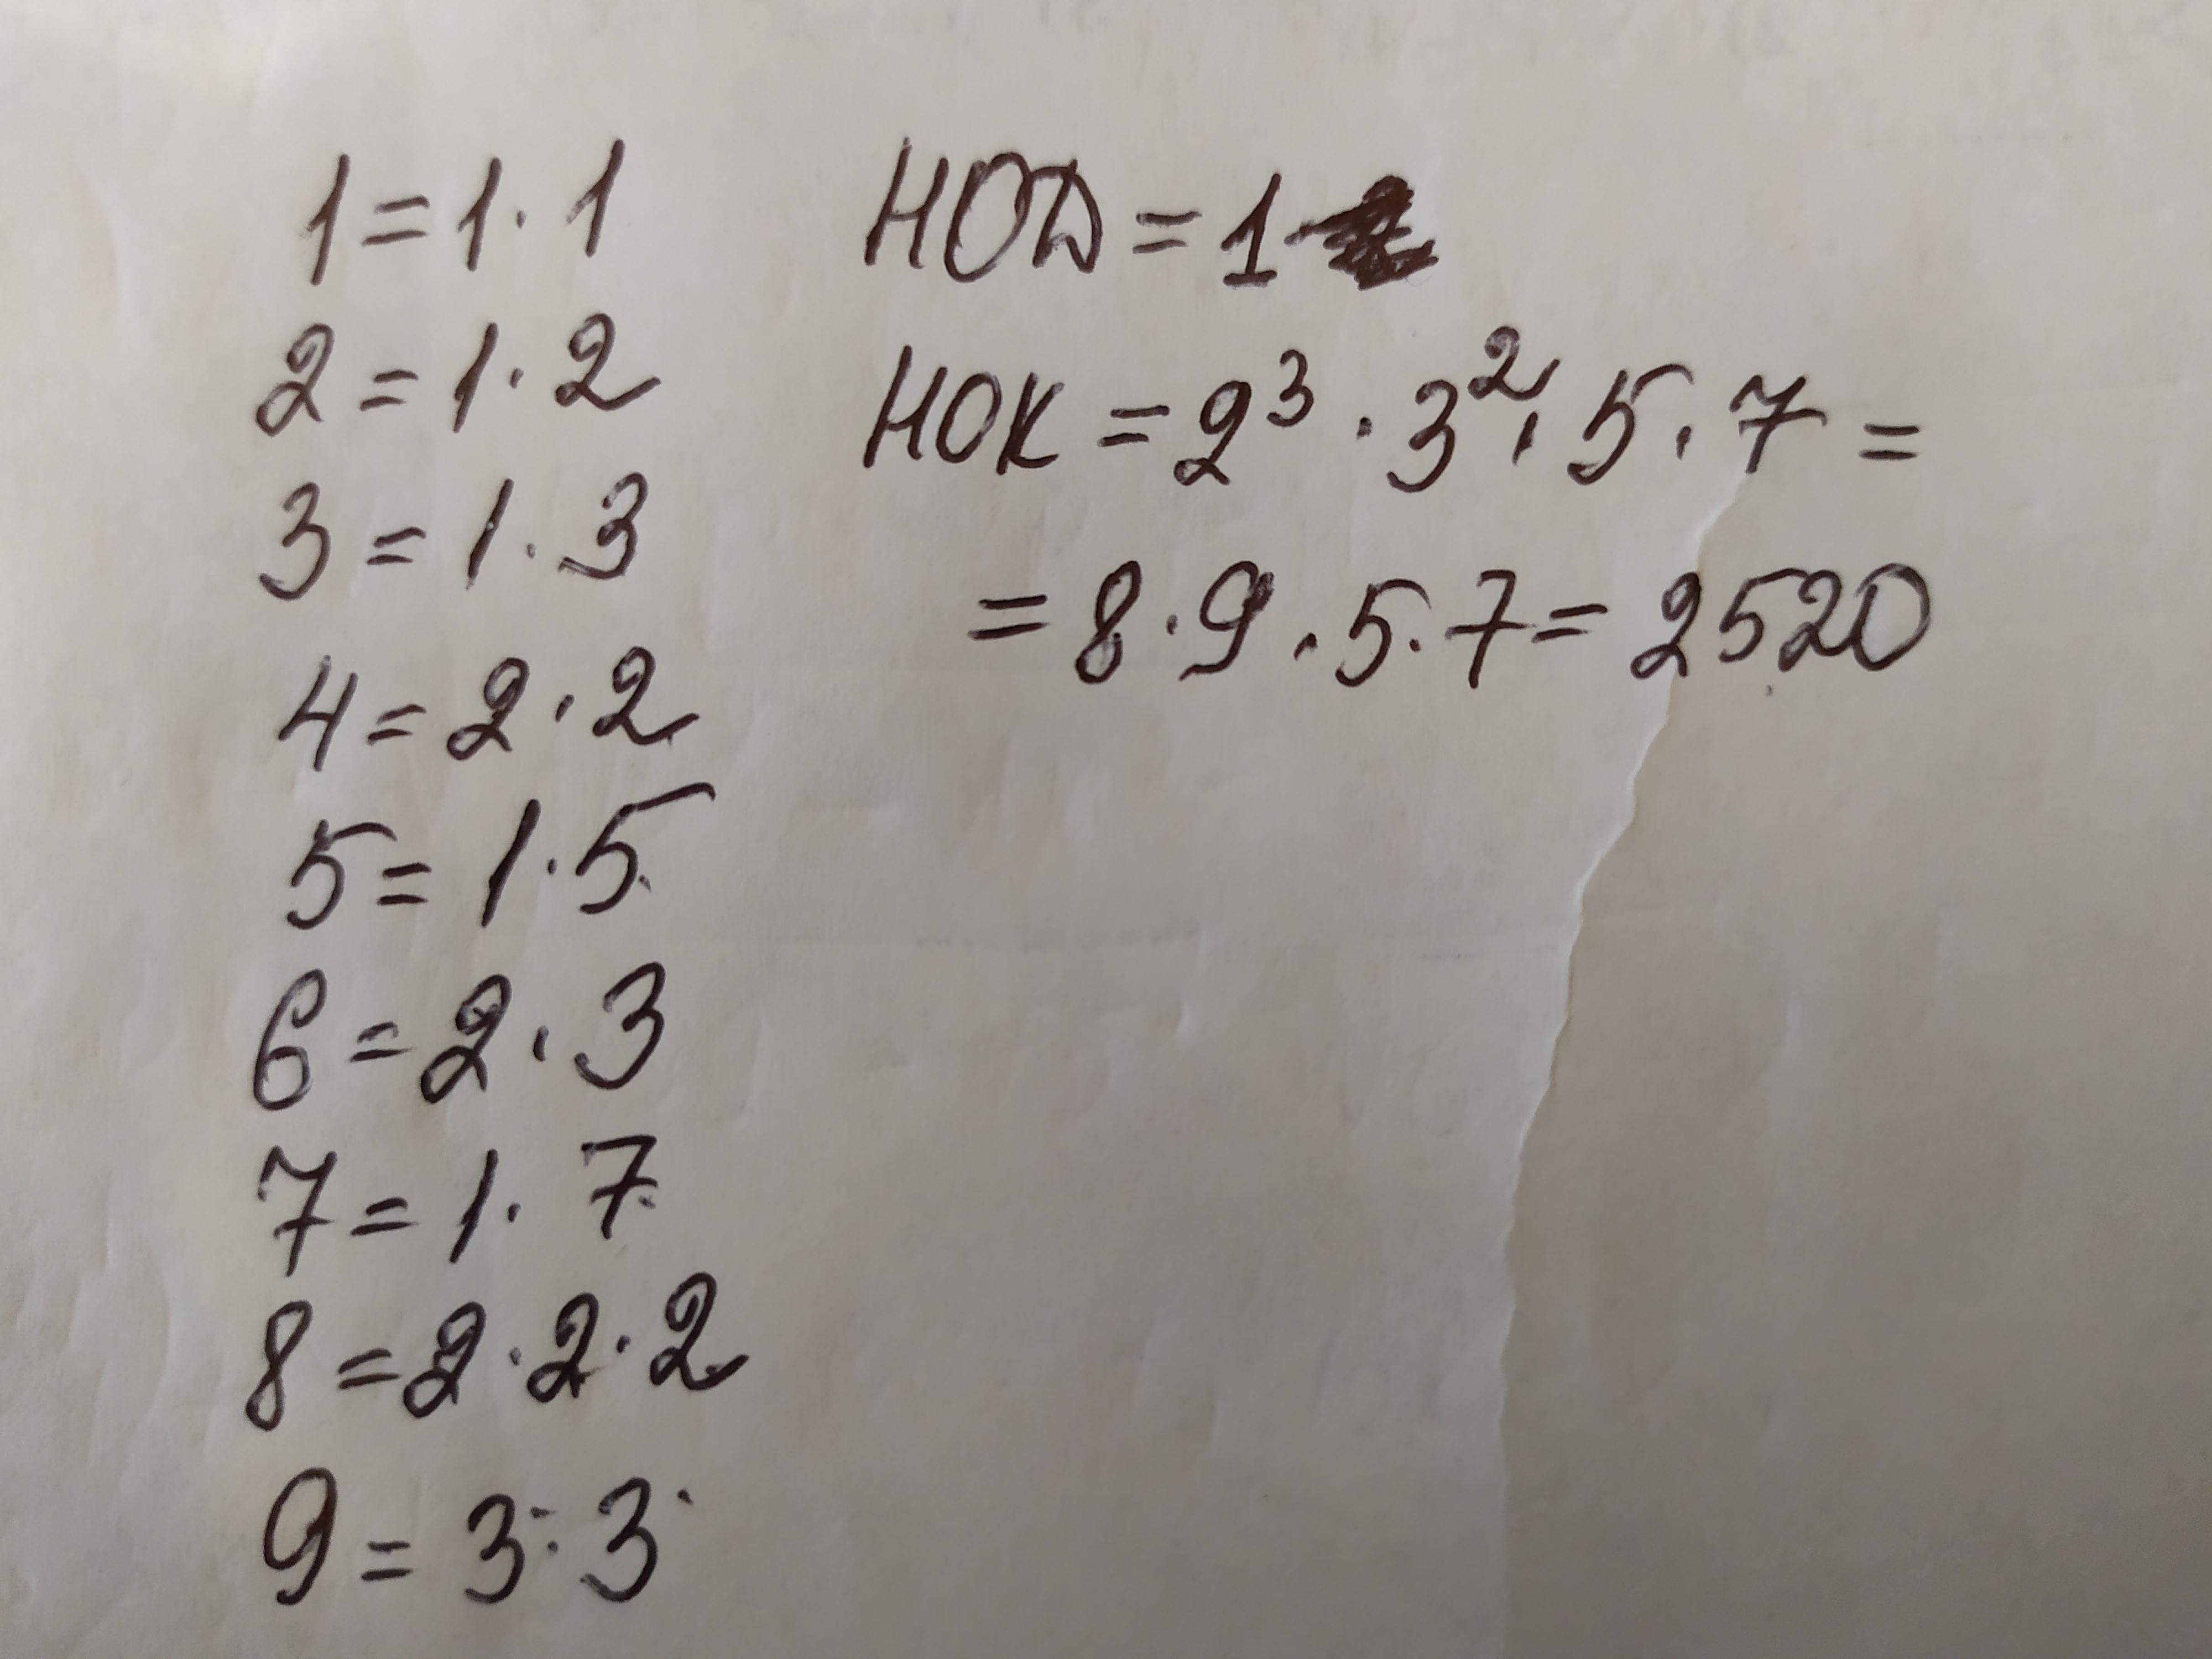 1 = 1 · 1
2 = 1 · 2
3 = 1 · 3
4 = 2 · 2
5 = 1 · 5
6 = 2 · 3
7 = 1 · 7
8 = 2 · 2 · 2
9 = 3 · 3
НОД = 1
НОК = 2³ · 3² · 5 · 7 =
= 8 · 9 · 5 · 7 = 2520